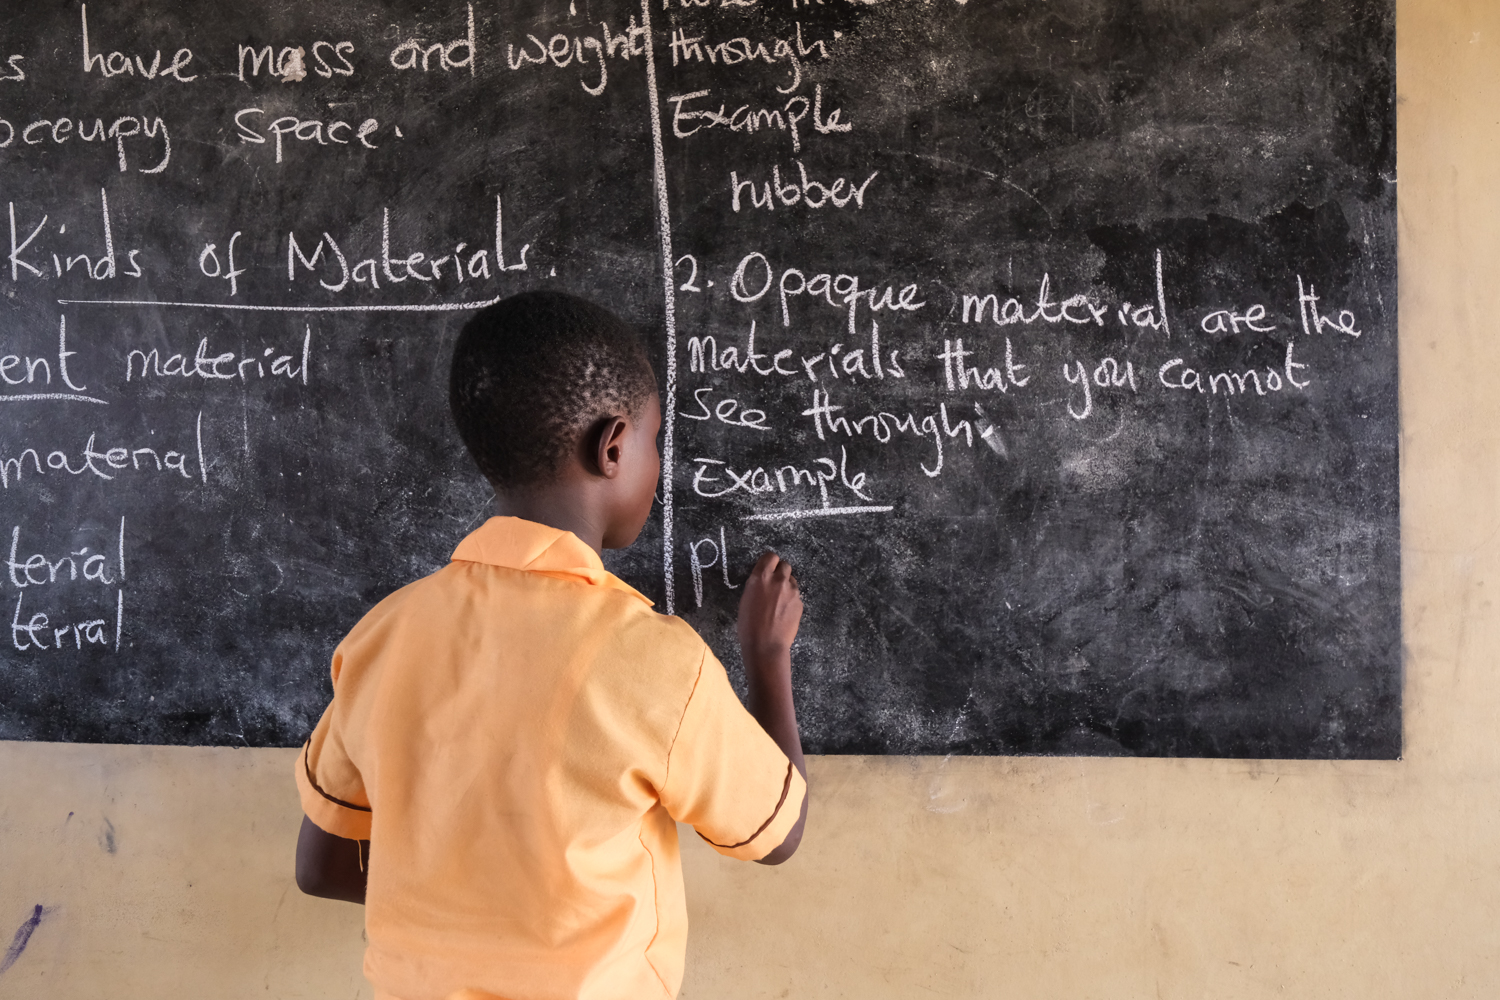 have mass and weight
occupy space.
Kinds of Materials.
material
material
through.
Example
rubber
2. Opaque material are the
Materials that you cannot
see through.
Example
Pl